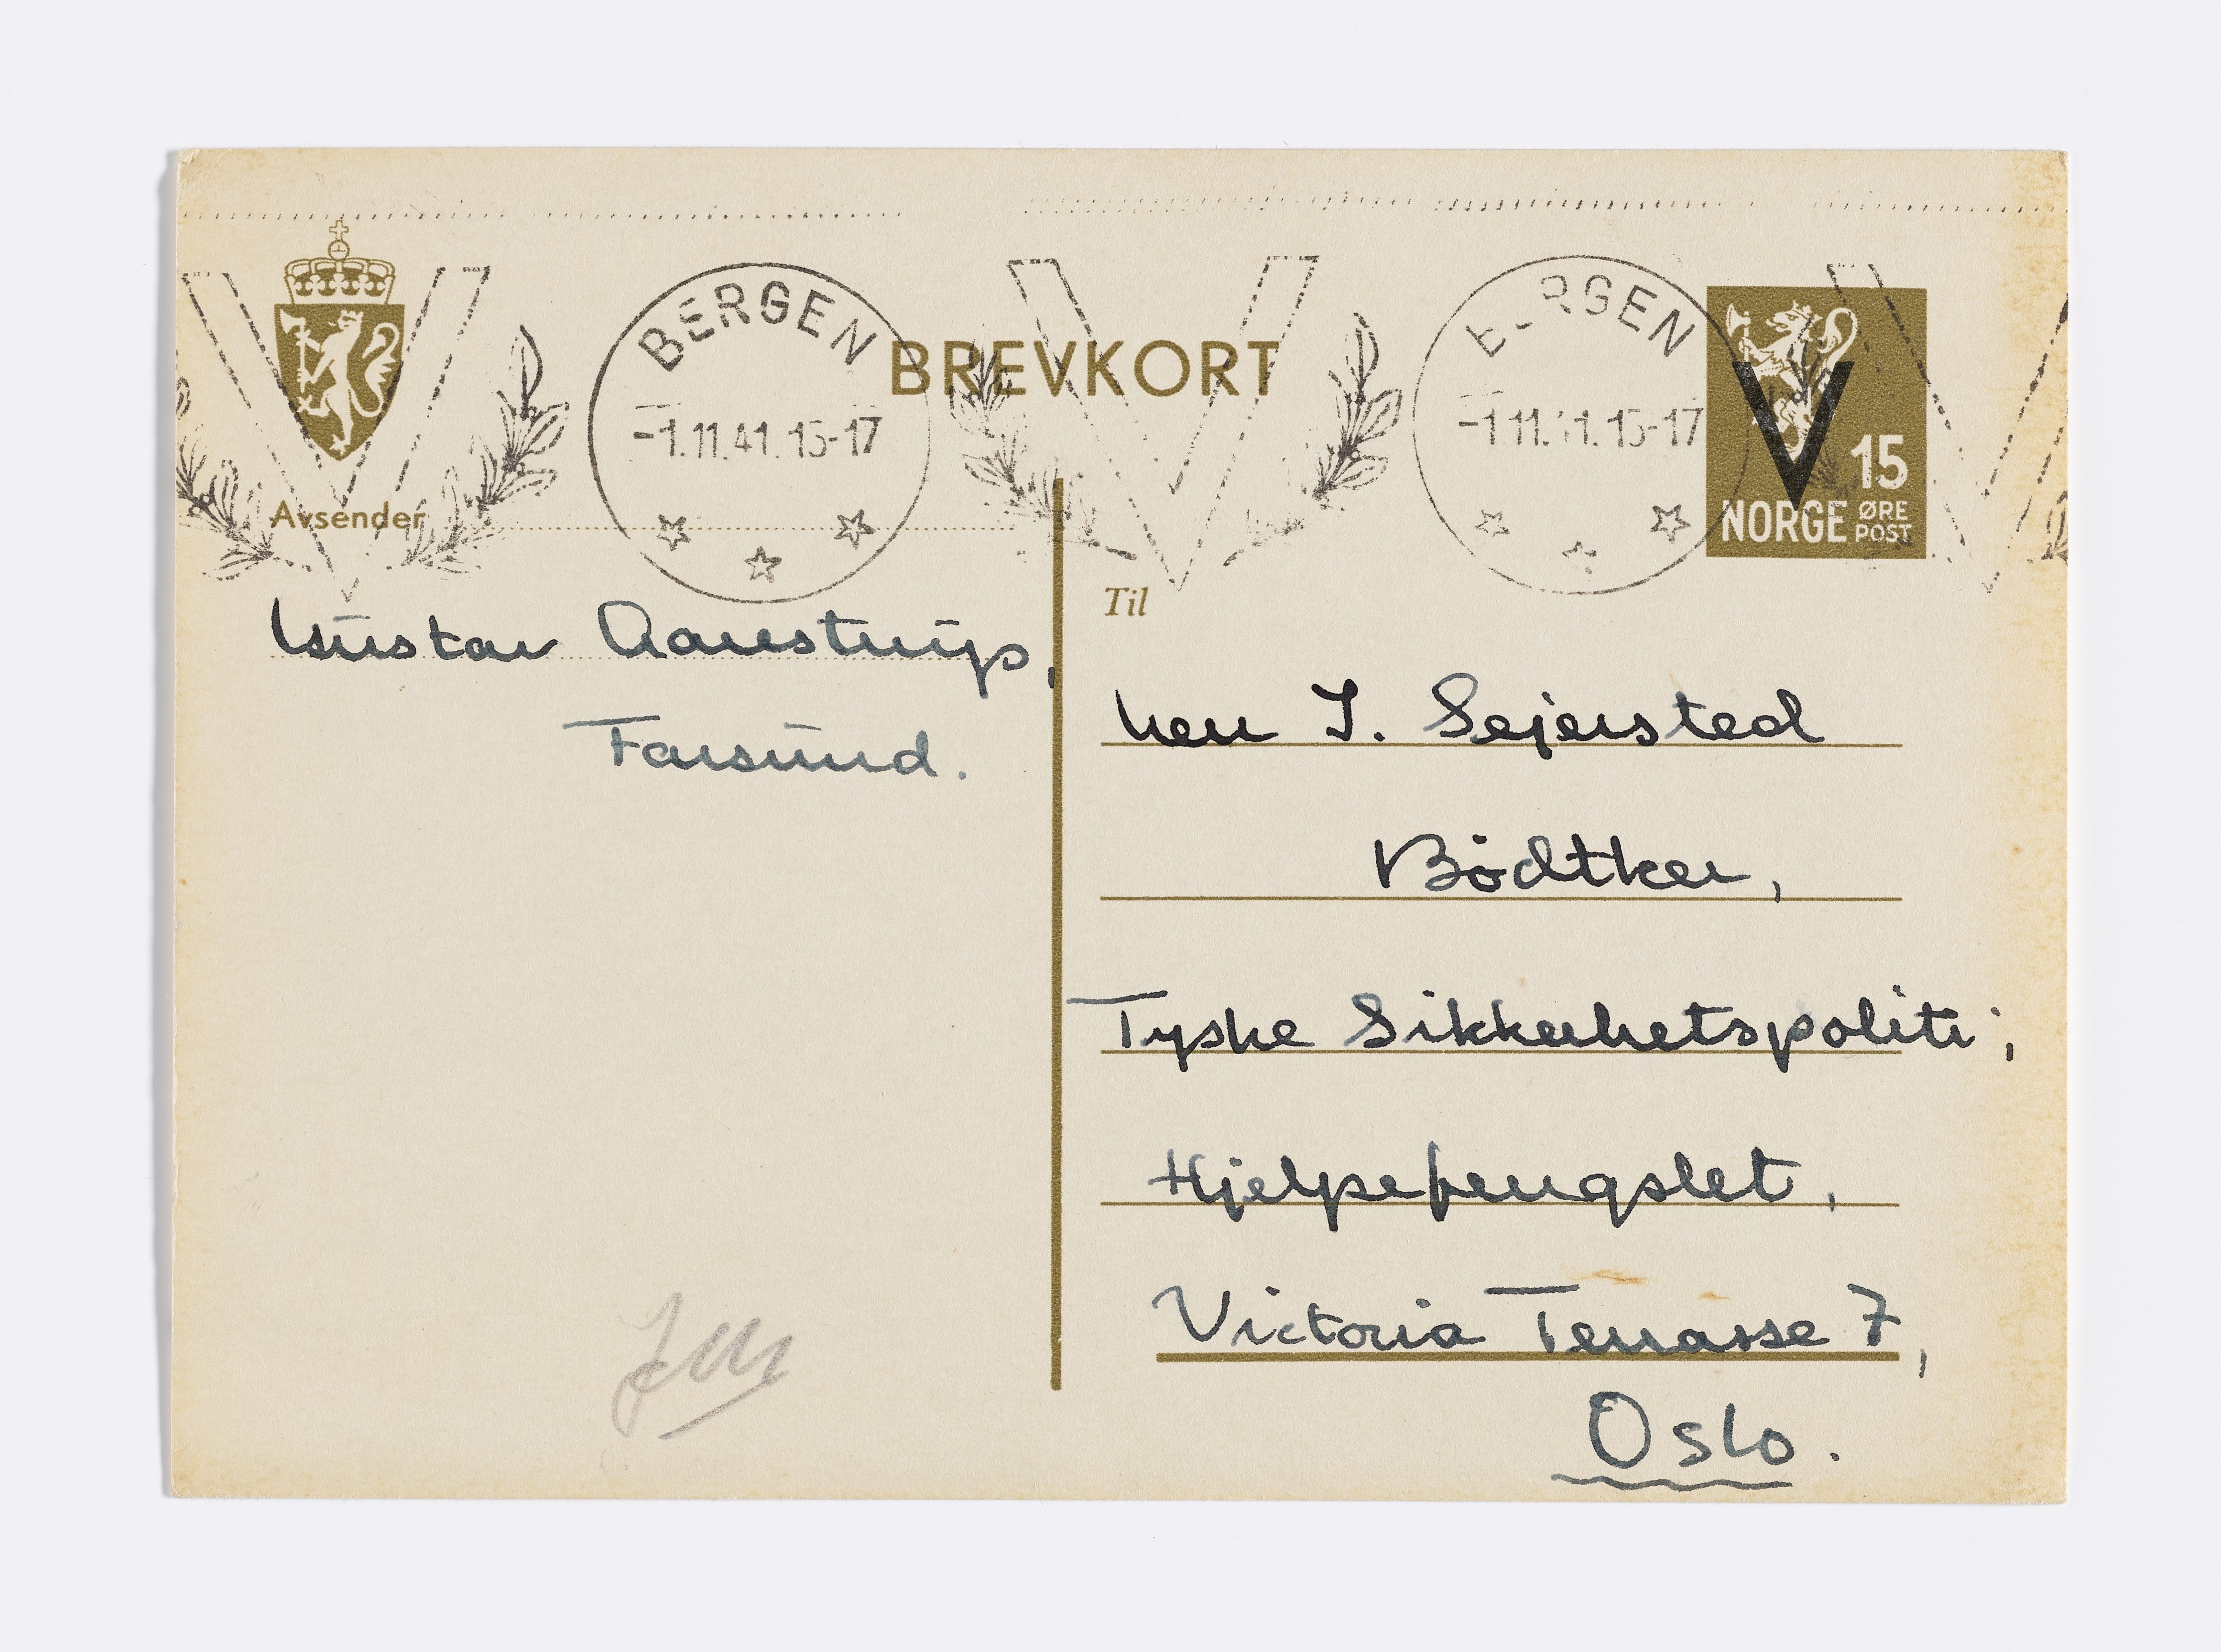 BERGEN
-1.11.41.15-17
BREVKORT
BERGEN
-1.11.41.15-17
V
15
NORGE
ØRE
POST
Avsender
Gustav Aarestrup,
Farsund.
Til
herr J. Sejersted
Bødtker,
Tyske Sikkerhetspoliti,
Hjelpefengslet,
Victoria Terrasse 7,
Oslo.